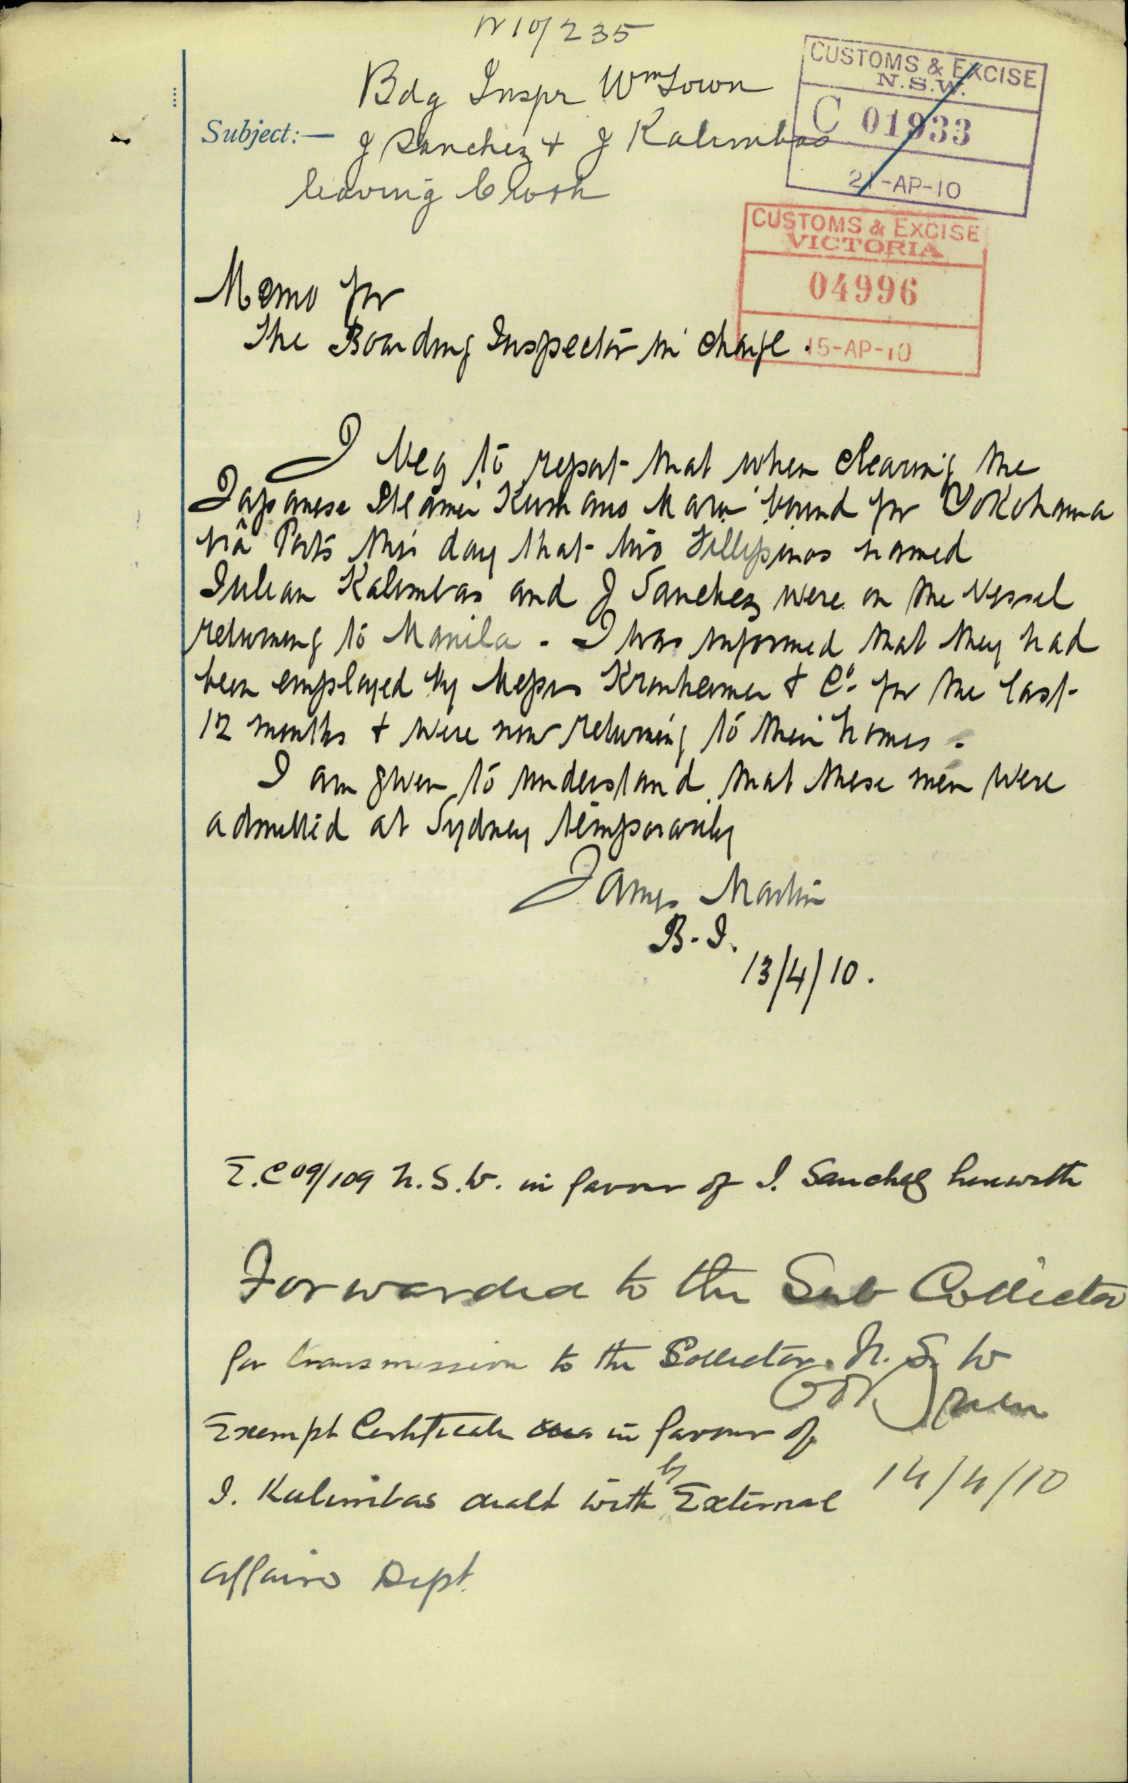 W10/235
Bdg Inspr Wm Town
Subject:— J Sanchez & J Kalimbas
leaving C'wth
CUSTOMS & EXCISE
N.S.W.
C 01933
21-AP-10
CUSTOMS & EXCISE
VICTORIA
04996
15-AP-10
Memo for
The Boarding Inspector in charge.
I beg to report that when clearing the
Japanese Steamer Kumano Maru bound for Yokohama
viâ Ports this day that two Fillipinos named
Julian Kalimbas and J Sanchez were on the Vessel
returning to Manila - I was informed that they had
been employed by Messrs Kronheimer & Co. for the last
12 months & were now returning to their homes.
I am given to understand that these men were
admitted at Sydney temporarily
James Martin
B. I.
13/4/10.
E.C 09/109 N.S.W. in favour of I. Sanchez herewith
Forwarded to the Sub Collector
for transmission to the Collector N. S. W
Exempt Certificate in favour of
I. Kalimbas dealt with by External
14/4/10
Affairs Dept.